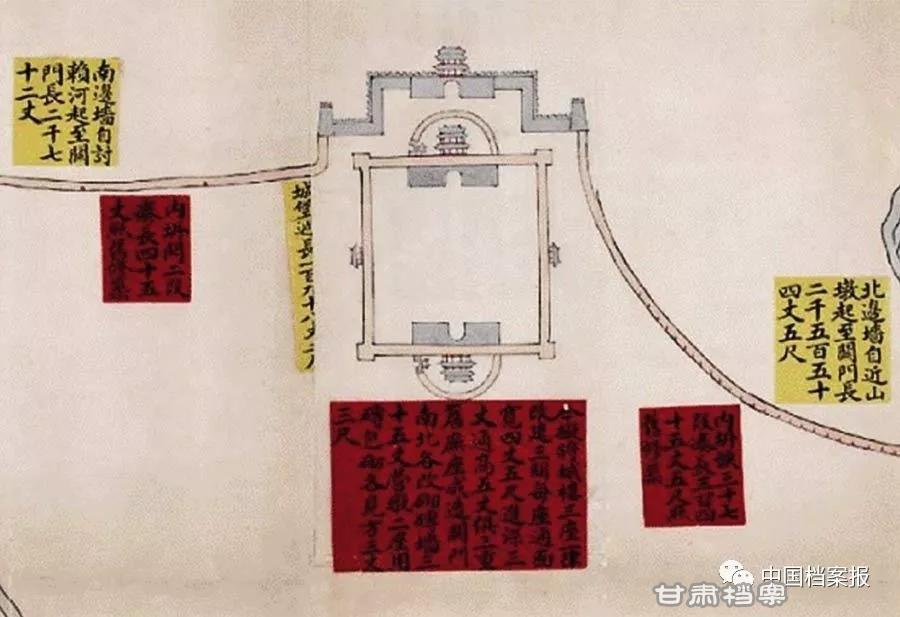 南邊墻自討
賴河起至關
門長二千七
十二丈
内坍開二段
湊長四十五
丈照舊修築
城堡週長一百九十八丈二尺
今擬將城樓三座一律
改建三間每座通面
寬四丈五尺進深三
丈通高五丈俱二重
南北各改砌磚墻三
十五丈當敵二座用
磚包砌各見方三丈
三尺
北邊墻自近山
墩起至關門長
二千五百五十
四丈五尺
内坍三十七
段湊長三百四
十五丈五尺照
舊修築
中国档案报
甘肃档案